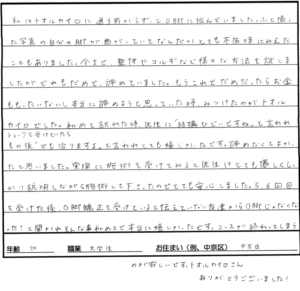 私はトオルカイロに通う前からずっとO脚に悩んでいました。ふと撮っ
た写真の自分の脚が曲がっていてなんだかとても不格好にみえた
こともありました。今まで、整体やヨガなど様々な方法を試しま
したがどれもだめで、諦めていました。もうこれでだめだったらお金
ももったいないし本当に諦めようと思っていた時、みつけたのがトオル
カイロでした。初めて訪れた時、先生に「結構ひどいですね」と言われ
ショックを受けていたら
その後"でも治りますよ"と言われとても嬉しかったです。諦めなくてよかっ
たと思いました。実際に施術を受けてみると先生はとても優しく、しっ
かり説明しながら施術して下さったのでとても安心しました。5、6回目
を受けた後、O脚矯正を受けていると伝えていない友達からO脚じゃなくな
った?と聞かれそんな事初めてで本当に嬉しかったです。コースが終わってしまう
年齢 20 職業 大学生 お住まい(例、中京区)
のが寂しいです。トオルカイロさん
ありがとうございました!